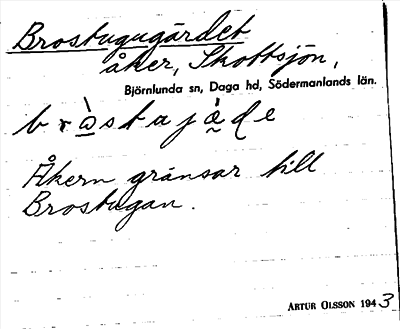 Brostugugärdet
åker, Skottsjön,
Björnlunda sn, Daga hd, Södermanlands län.
Åkern gränsar till
Brostugan.
ARTUR OLSSON 1943